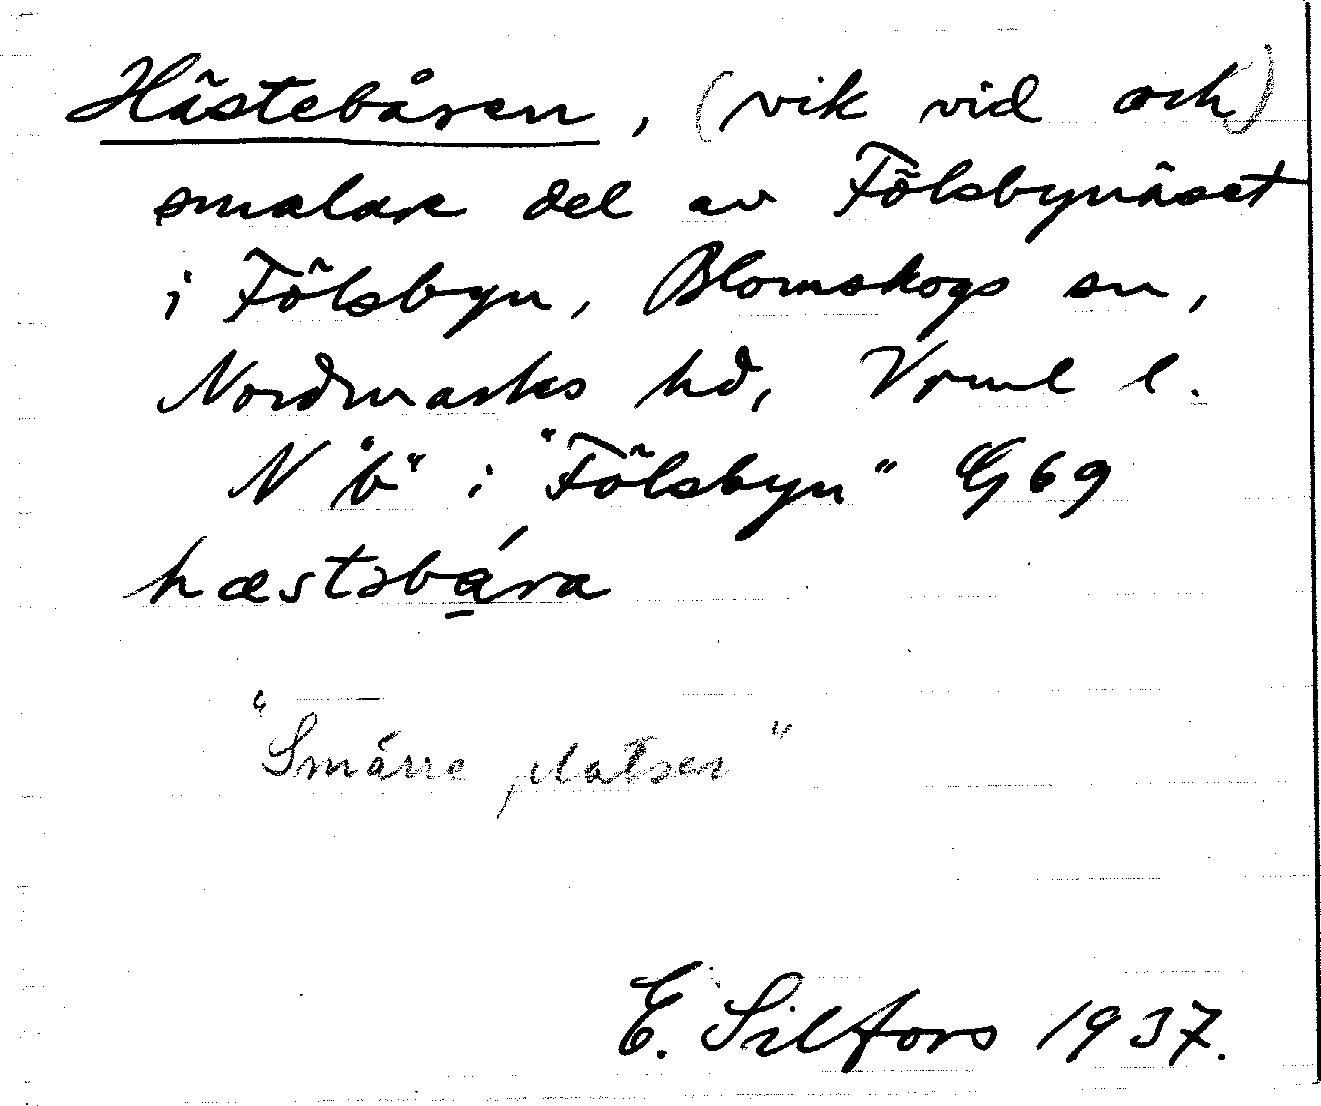 Hästebåren, (vik vid och)
smalare del av Fölsbynäset
i Fölsbyn, Blomskogs sn,
Nordmarks hd, Vrml l.
N "b" i "Fölsbyn" G 69
hæstəbára
"Smärre platser"
E. Silfors 1937.